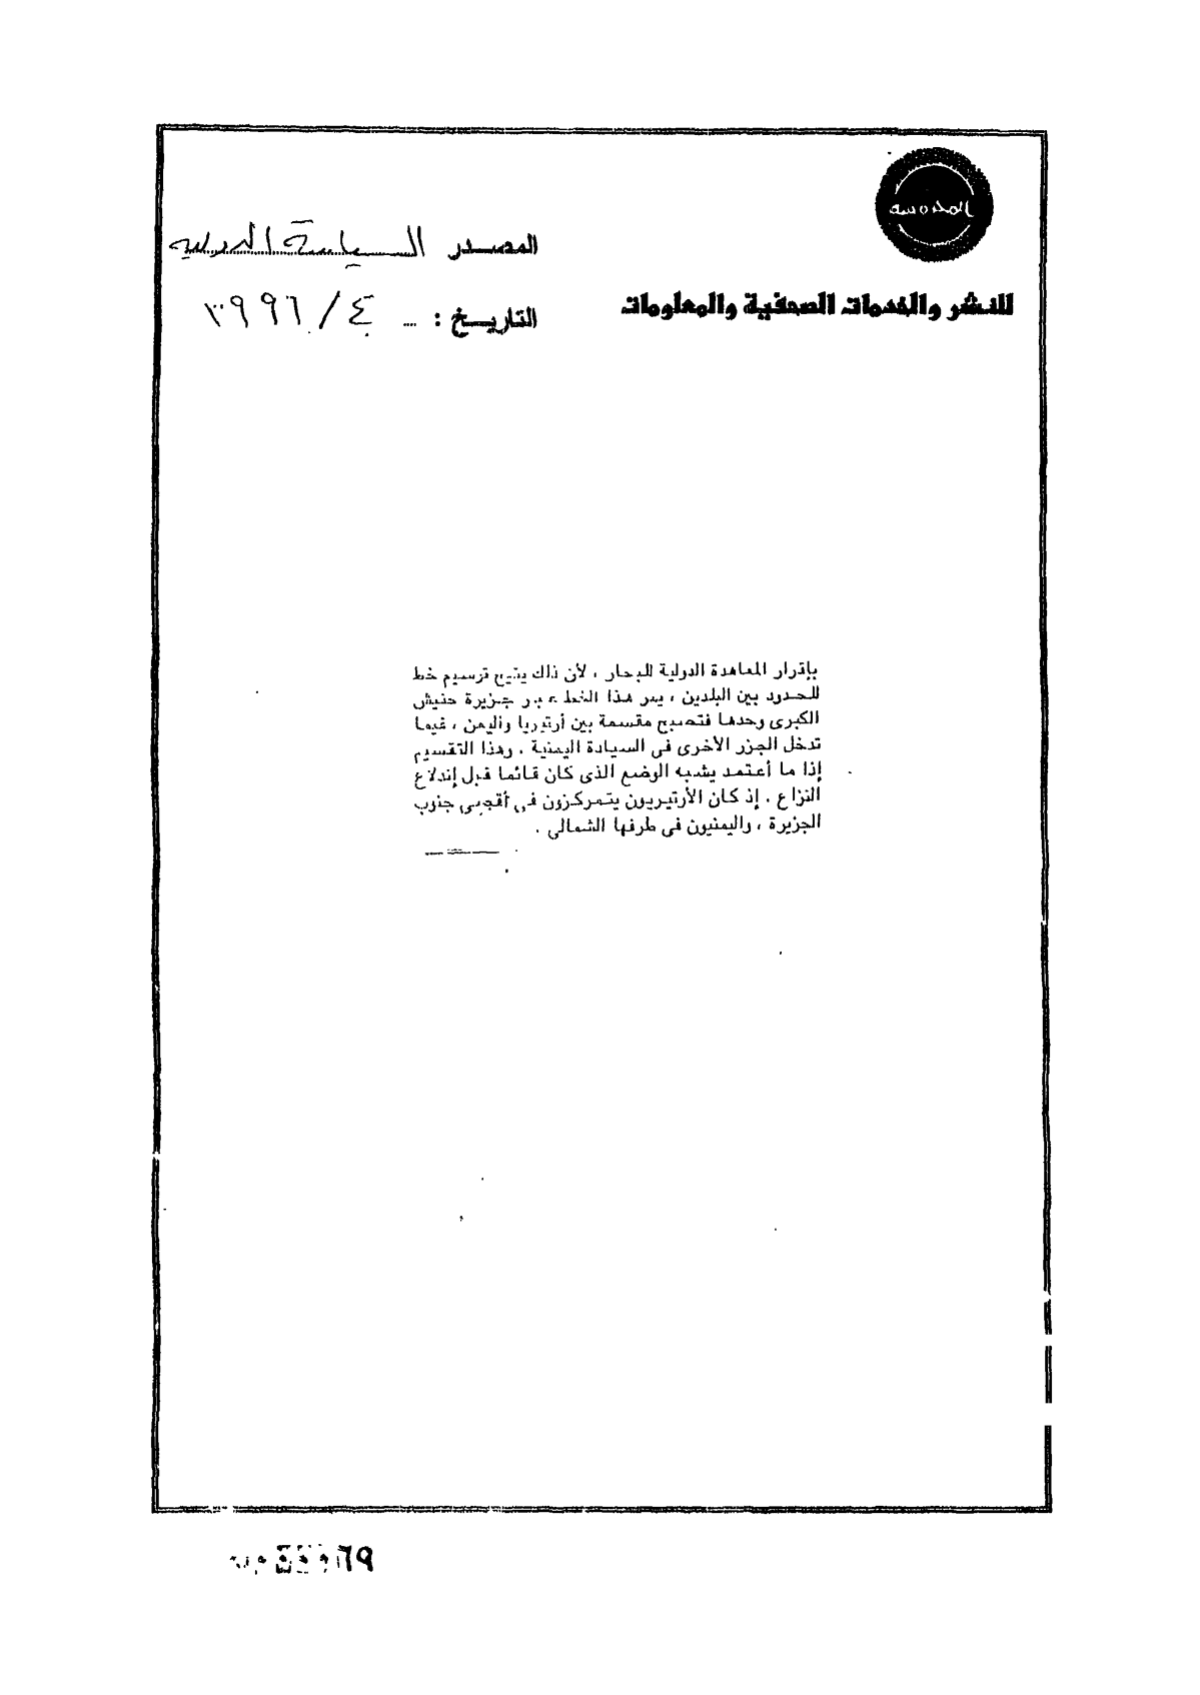 المحروسة
للنشر والخدمات الصحفية والمعلومات
المصدر السياسة الدولية
التاريخ : ٤ / ١٩٩٦
بإقرار المعاهدة الدولية للبحار ، لأن ذلك يتيح ترسيم خط
للحدود بين البلدين ، يمر هذا الخط عبر جزيرة حنيش
الكبرى وحدها فتصبح مقسمة بين أرتيريا واليمن ، فيما
تدخل الجزر الأخرى فى السيادة اليمنية . وهذا التقسيم
إذا ما أعتمد يشبه الوضع الذى كان قائما قبل إندلاع
النزاع . إذ كان الأرتيريون يتمركزون فى أقصى جنوب
الجزيرة ، واليمنيون فى طرفها الشمالى .